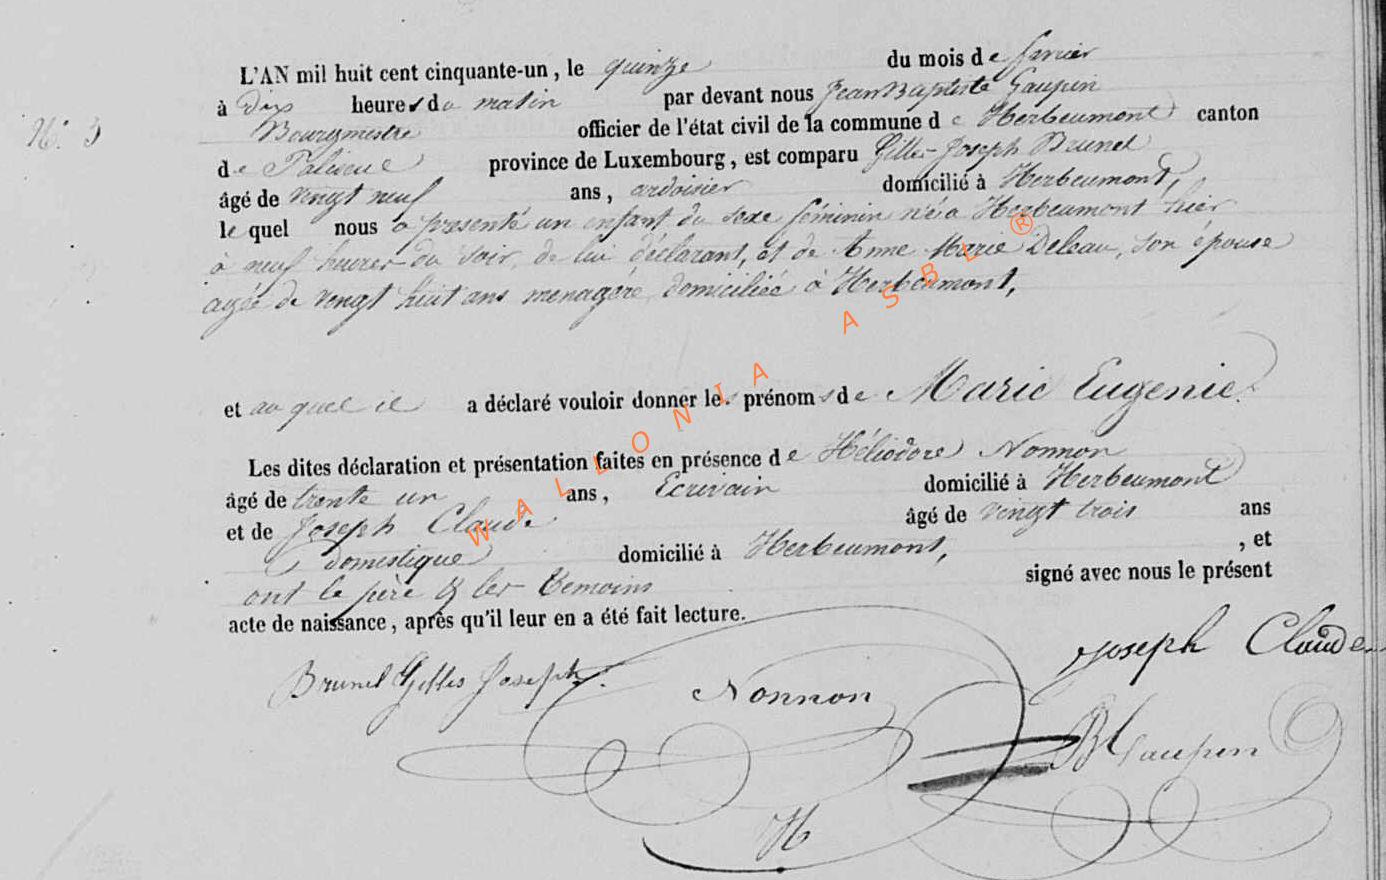 N° 5
L'AN mil huit cent cinquante-un, le quinze du mois de Janvier
à dix heures du matin par devant nous Jean Baptiste Gaupin
Bourgmestre officier de l'état civil de la commune de Herbeumont canton
de Paliseul province de Luxembourg, est comparu Gilles-Joseph Brunel
âgé de vingt neuf ans, ardoisier domicilié à Herbeumont,
le quel nous a presenté un enfant du sexe féminin né à Herbeumont hier
à neuf heures du soir, de lui déclarant, et de Anne Marie Deleau, son épouse
agée de vingt huit ans menagére, domiciliée à Herbeumont,
et au quel il a déclaré vouloir donner les prénoms de Marie Eugenie.
Les dites déclaration et présentation faites en présence de Héliodore Nonnon
âgé de trente un ans, Ecrivain domicilié à Herbeumont
et de Joseph Claude âgé de vingt trois ans
domestique domicilié à Herbeumont, , et
ont le père & les temoins signé avec nous le présent
acte de naissance, après qu'il leur en a été fait lecture.
Brunel Gilles Joseph. Nonnon Joseph Claude
JB Gaupin
H
WALLONIA ASBL ®